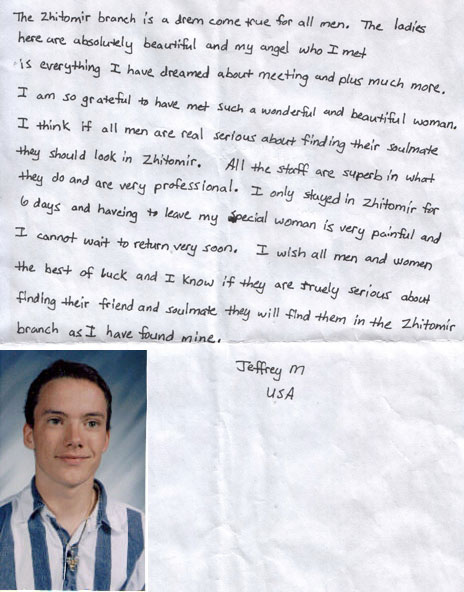 The Zhitomir branch is a drem come true for all men. The ladies
here are absolutely beautiful and my angel who I met
is everything I have dreamed about meeting and plus much more.
I am so grateful to have met such a wonderful and beautiful woman.
I think if all men are real serious about finding their soulmate
they should look in Zhitomir. All the staff are superb in what
they do and are very professional. I only stayed in Zhitomir for
6 days and haveing to leave my special woman is very painful and
I cannot wait to return very soon. I wish all men and women
the best of luck and I know if they are truely serious about
finding their friend and soulmate they will find them in the Zhitomir
branch as I have found mine.
Jeffrey M
USA